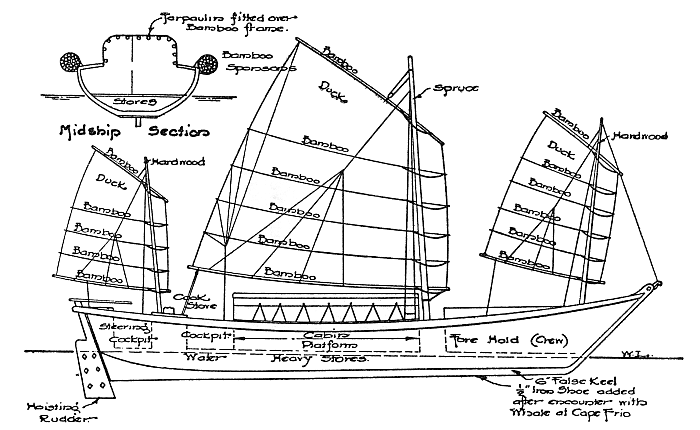 Tarpaulin fitted over
Bamboo frame.
Bamboo
Sponsons
Stores
Midship Section
Bamboo
Duck
Spruce
Bamboo
Bamboo
Bamboo
Bamboo
Bamboo
Bamboo
Hardwood
Duck
Bamboo
Bamboo
Bamboo
Bamboo
Bamboo
Hardwood
Duck
Bamboo
Bamboo
Bamboo
Bamboo
Cook
Stove
Steering
Cockpit
Cockpit
Cabin
Platform
Fore Hold (Crew)
Water
Heavy Stores.
W.L.
6" False Keel
½" Iron Shoe added
after encounter with
Whale at Cape Frio
Hoisting
Rudder